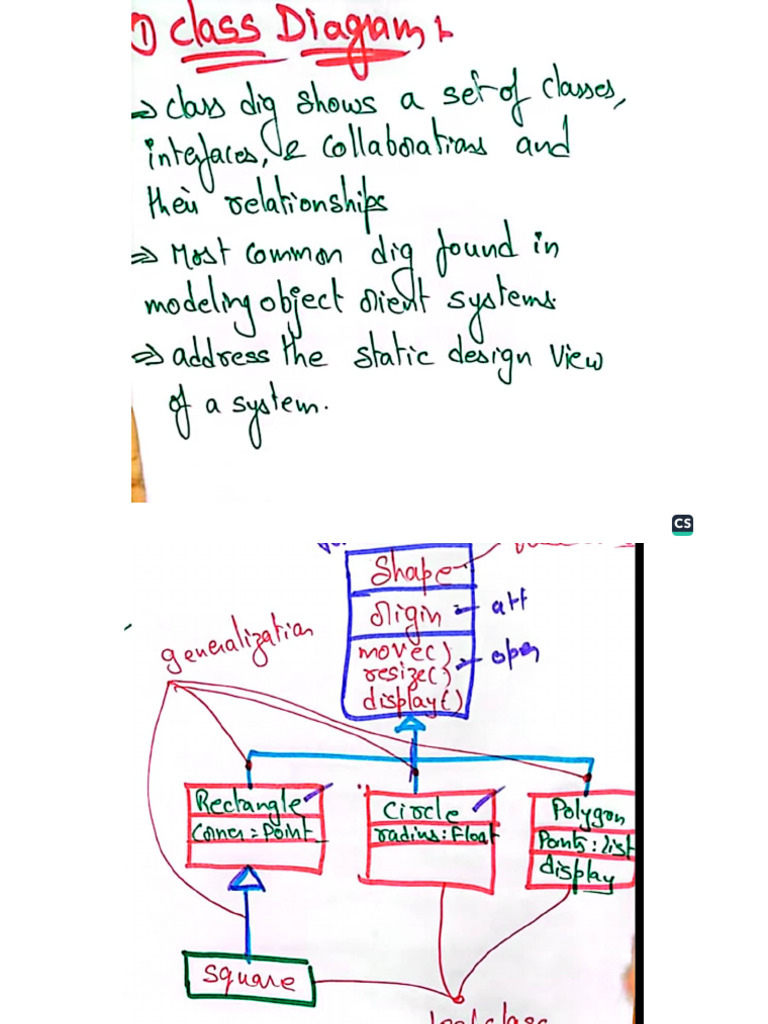 ① Class Diagram :-
⇒ class dig shows a set of classes,
interfaces, & collaborations and
their relationships
⇒ Most common dig found in
modeling object orient systems.
⇒ address the static design view
of a system.
CS
Shape
origin - att
generalization
move()
resize() - open
display()
Rectangle
Circle
Polygon
Corner = Point
radius : Float
Points : list
display
square
leaf class